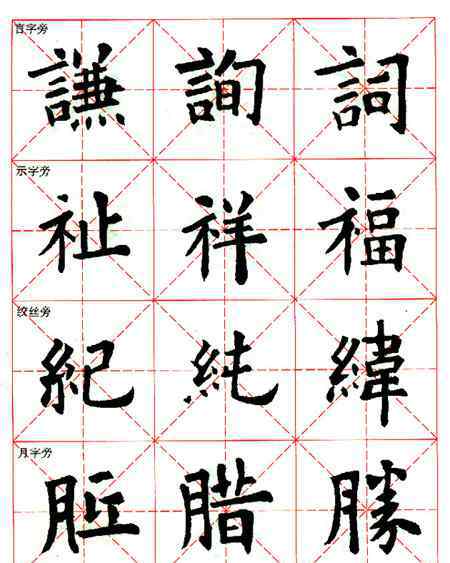 言字旁
謙詢詞
示字旁
祉祥福
绞丝旁
紀純緯
月字旁
腊勝